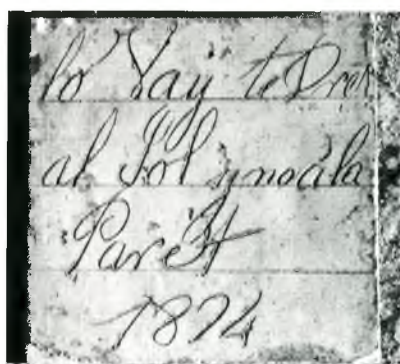 lo Vaÿ te Dret
al Sol ynoàla
Parét
1874